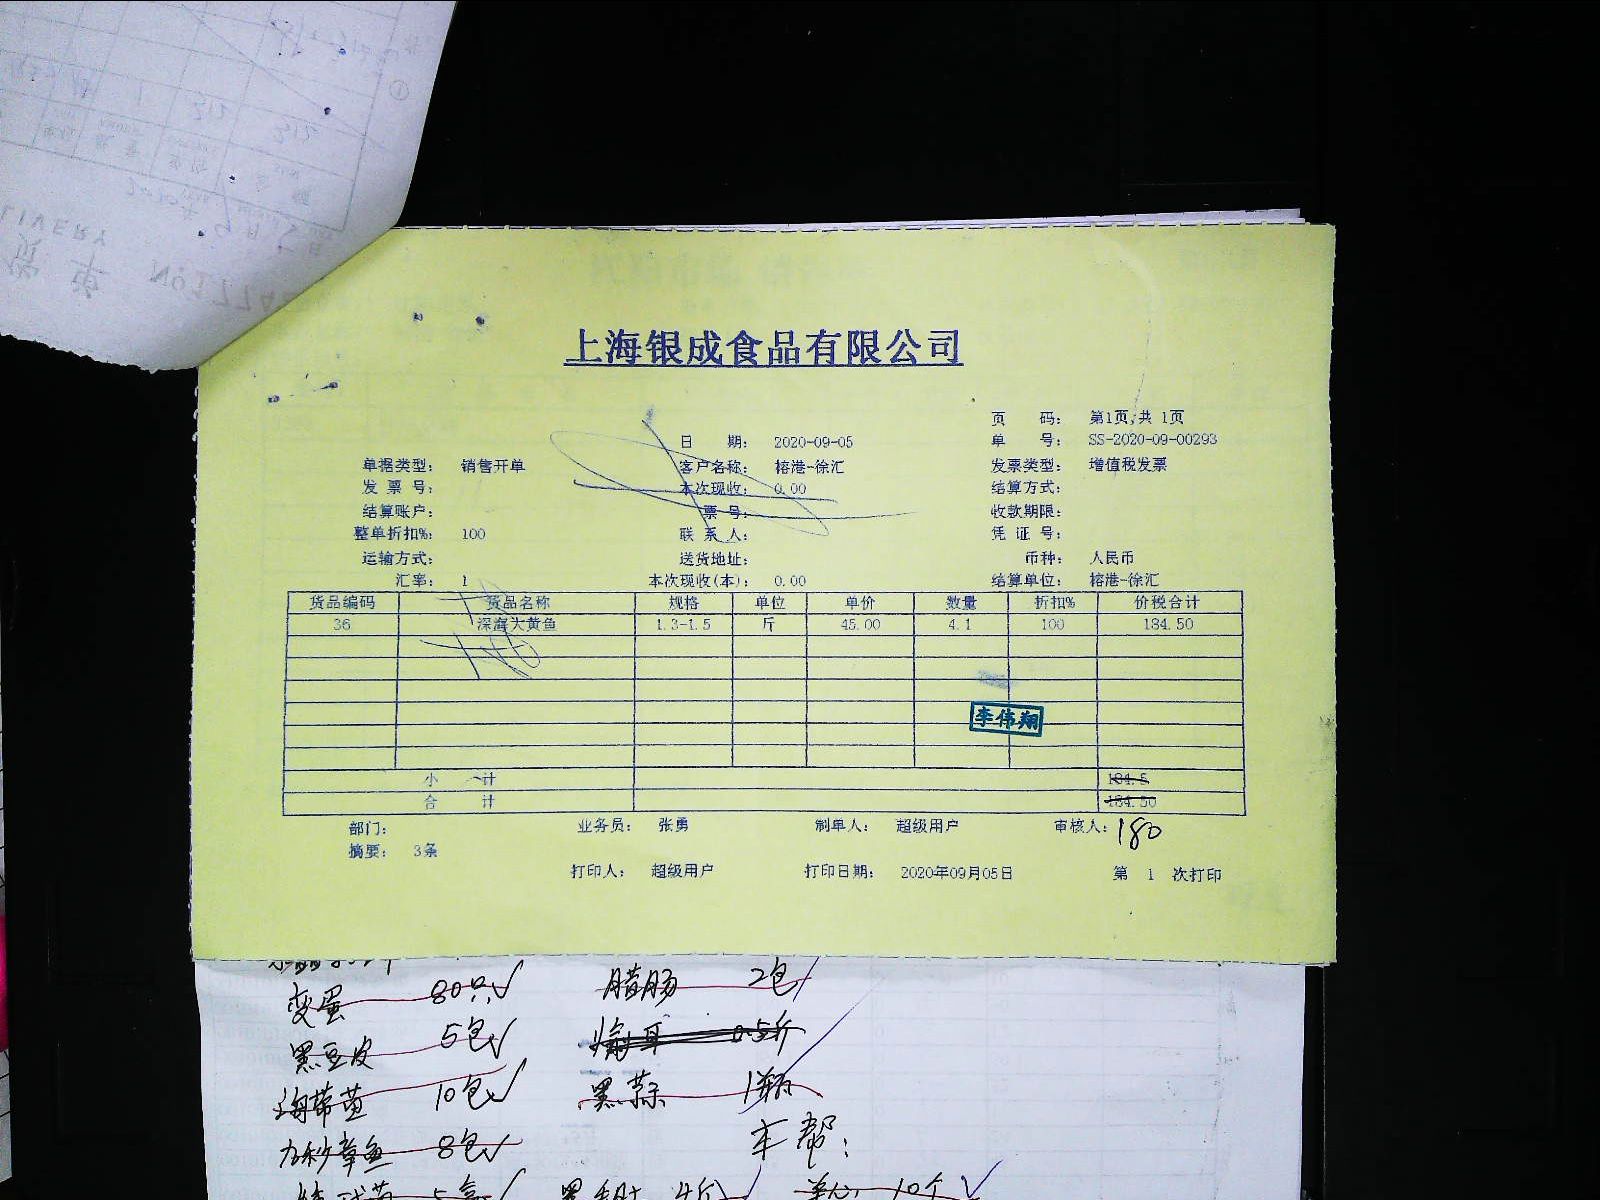 上海银成食品有限公司
页 码： 第1页,共 1页
日 期： 2020-09-05 单 号： SS-2020-09-00293
单据类型： 销售开单 客户名称： 榕港-徐汇 发票类型： 增值税发票
发 票 号： 本次现收： 0.00 结算方式：
结算账户： 票号： 收款期限：
整单折扣%： 100 联 系 人： 凭 证 号：
运输方式： 送货地址： 币种： 人民币
汇率： 1 本次现收(本)： 0.00 结算单位： 榕港-徐汇
货品编码 货品名称 规格 单位 单价 数量 折扣% 价税合计
36 深海大黄鱼 1.3-1.5 斤 45.00 4.1 100 184.50
李伟翔
小 计 184.5
合 计 184.50
部门： 业务员： 张勇 制单人： 超级用户 审核人： 180
摘要： 3条
打印人： 超级用户 打印日期： 2020年09月05日 第 1 次打印
变蛋 80只 腊肠 2包
黑豆皮 5包 0.5斤
海带苗 10包 黑蒜 1瓶
八秒章鱼 8包 车帮：
10个